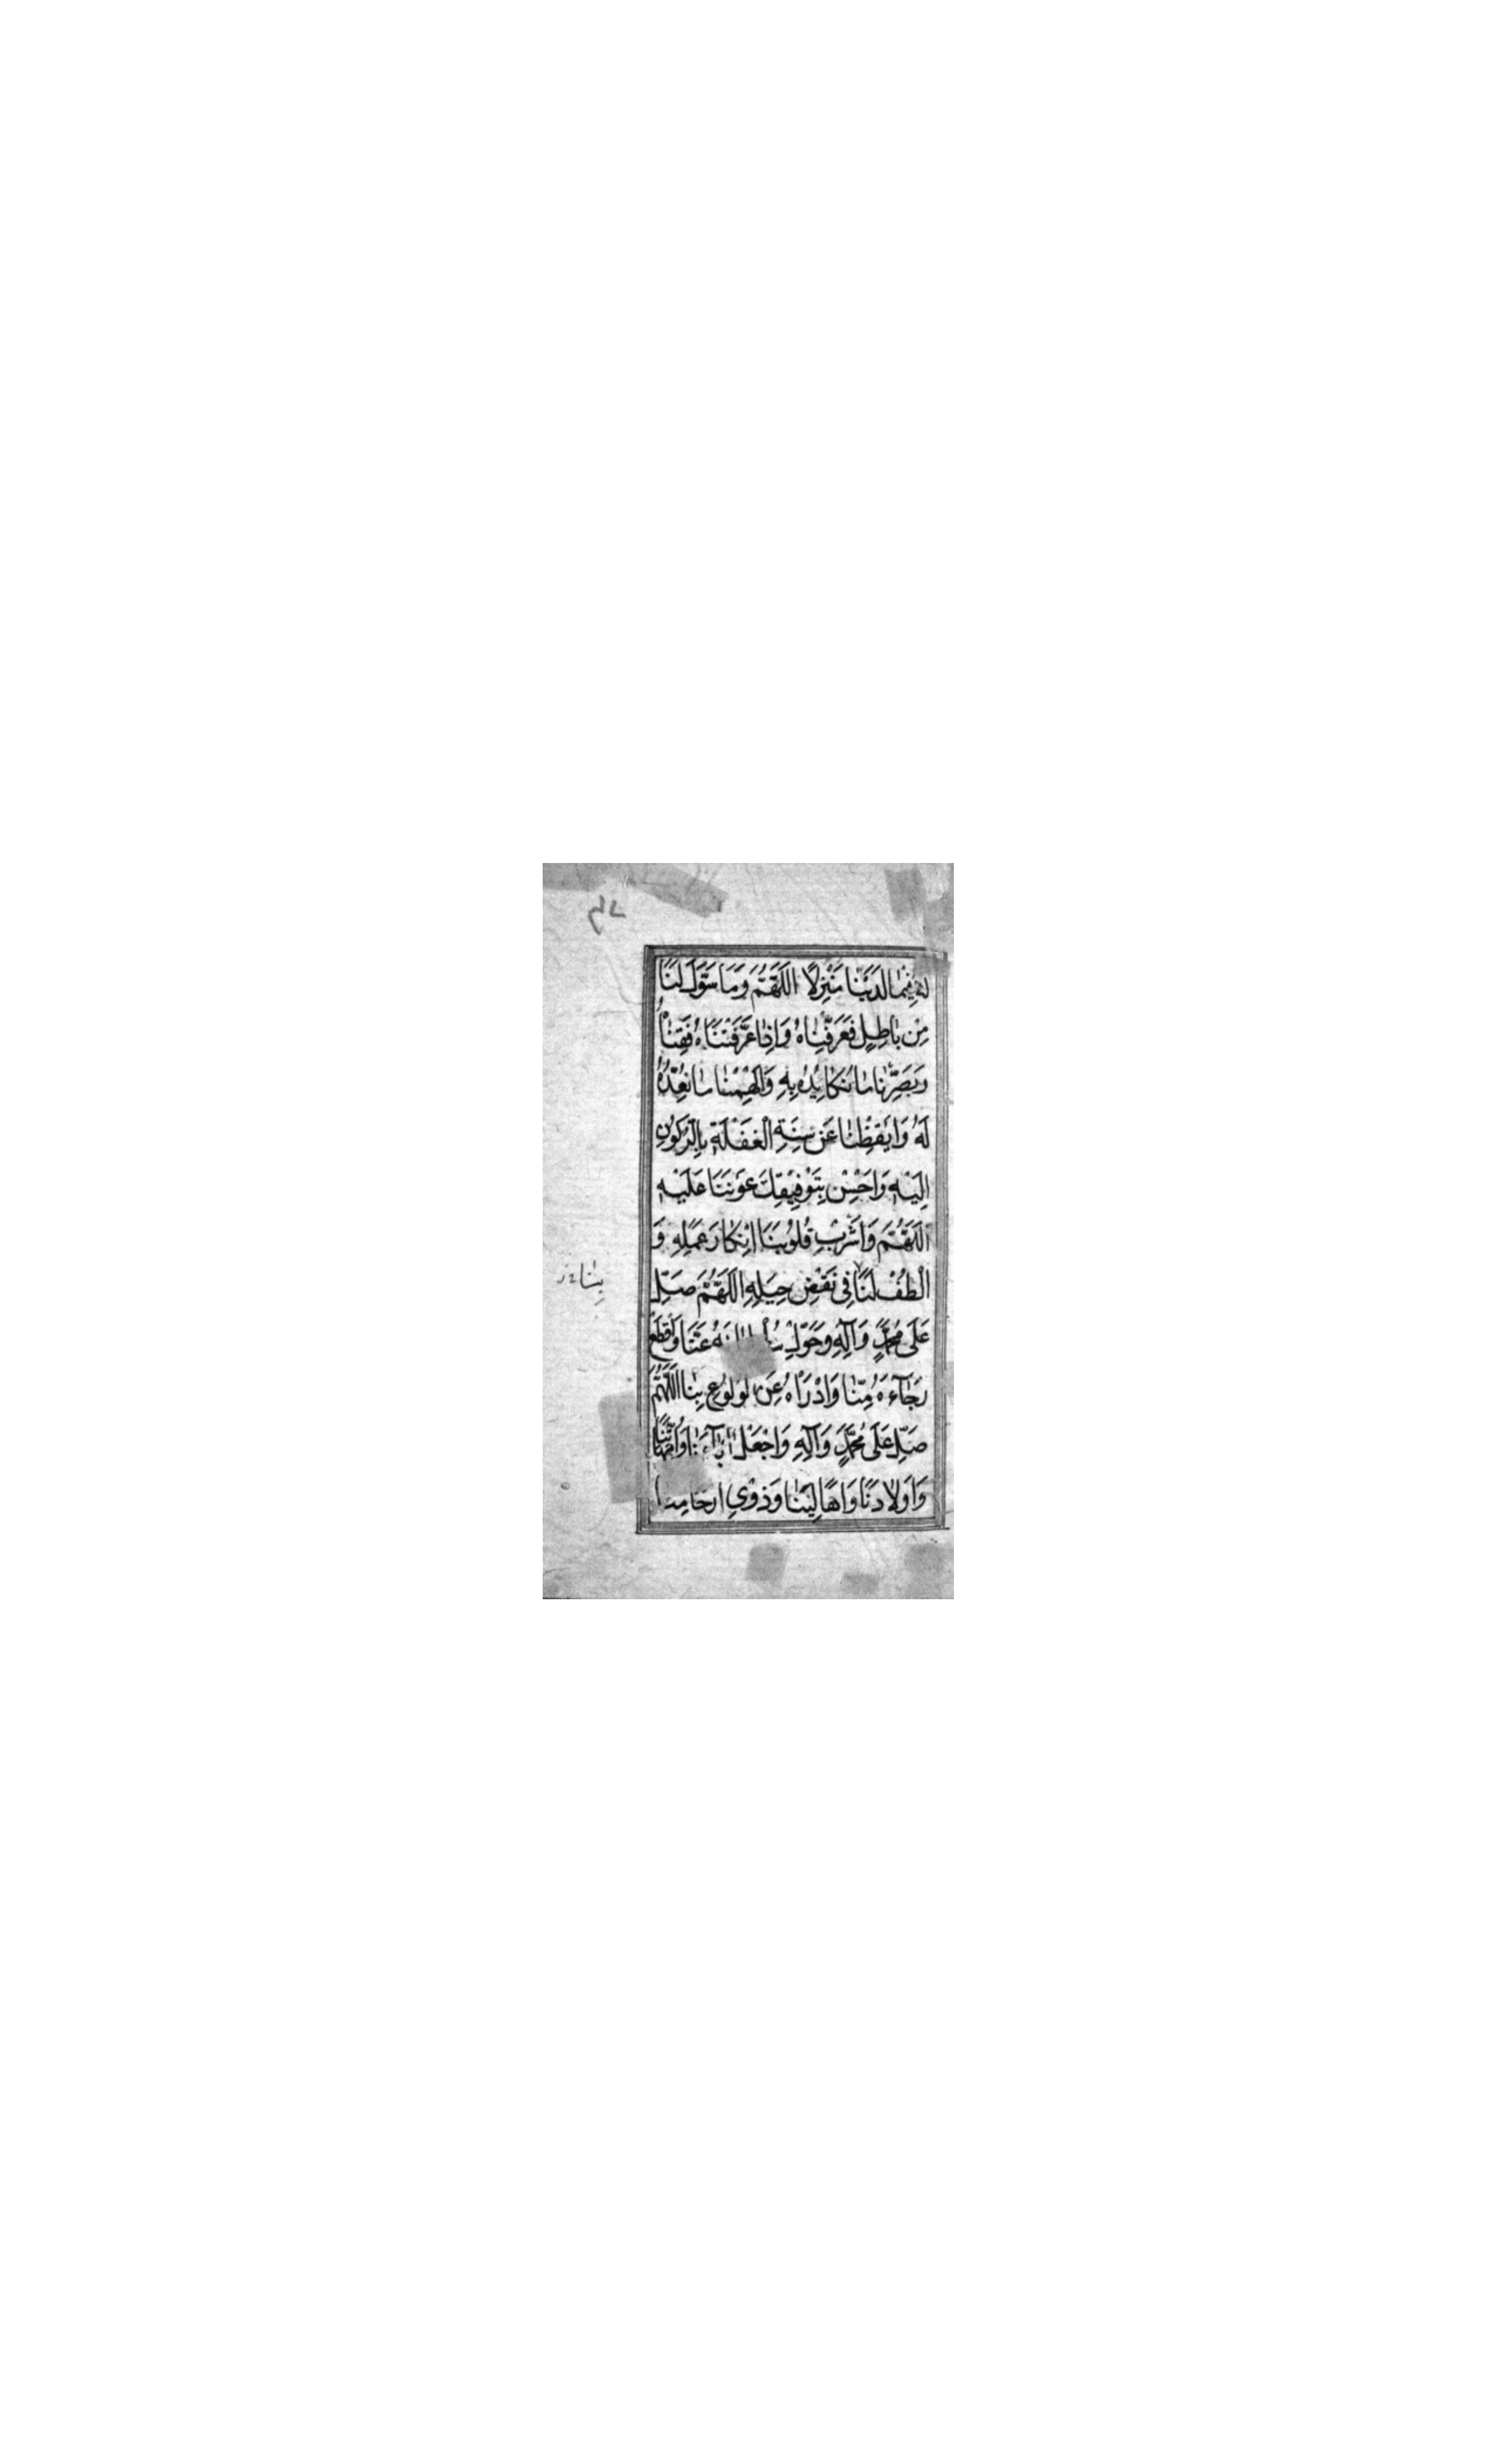 لَهُ فِيمَا لَدَيْنَا مَنْزِلًا اَللّٰهُمَّ وَمَا سَوَّلَ لَنَا
مِنْ بَاطِلٍ فَعَرِّفْنَاهُ وَاِذَا عَرَّفْتَنَاهُ فَقِنَاهُ
وَبَصِّرْنَا مَا نُكَائِدُهُ بِهِ وَاَلْهِمْنَا مَا نُعِدُّهُ
لَهُ وَاَيْقِظْنَا عَنْ سِنَةِ الْغَفْلَةِ بِالرُّكُونِ
اِلَيْهِ وَاَحْسِنْ بِتَوْفِيقِكَ عَوْنَنَا عَلَيْهِ
اَللّٰهُمَّ وَاَشْرِبْ قُلُوبَنَا اِنْكَارَ عَمَلِهِ وَ
الْطُفْ لَنَا فِي نَقْضِ حِيَلِهِ اَللّٰهُمَّ صَلِّ
عَلَى مُحَمَّدٍ وَآلِهِ وَحَوِّلْ عَنَّا وَاقْطَعْ
رَجَآءَهُ مِنَّا وَادْرَأْهُ عَنِ الْوَلُوعِ بِنَا اَللّٰهُمَّ
صَلِّ عَلَى مُحَمَّدٍ وَآلِهِ وَاجْعَلْ آبَآءَنَا وَاُمَّهَاتِنَا
وَاَوْلَادَنَا وَاَهَالِيَنَا وَذَوِي اَرْحَامِنَا